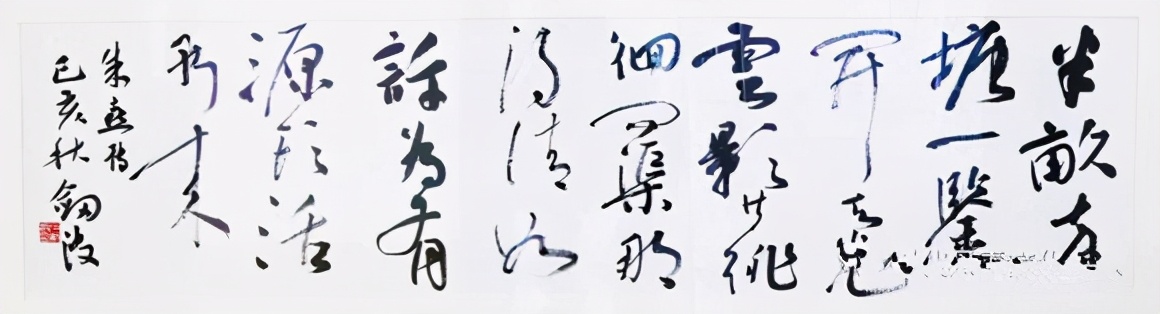 半畝方
塘一鑒
開天光
雲影共徘
徊問渠那
得清如
許為有
源頭活
水來
朱熹詩
己亥秋劍波